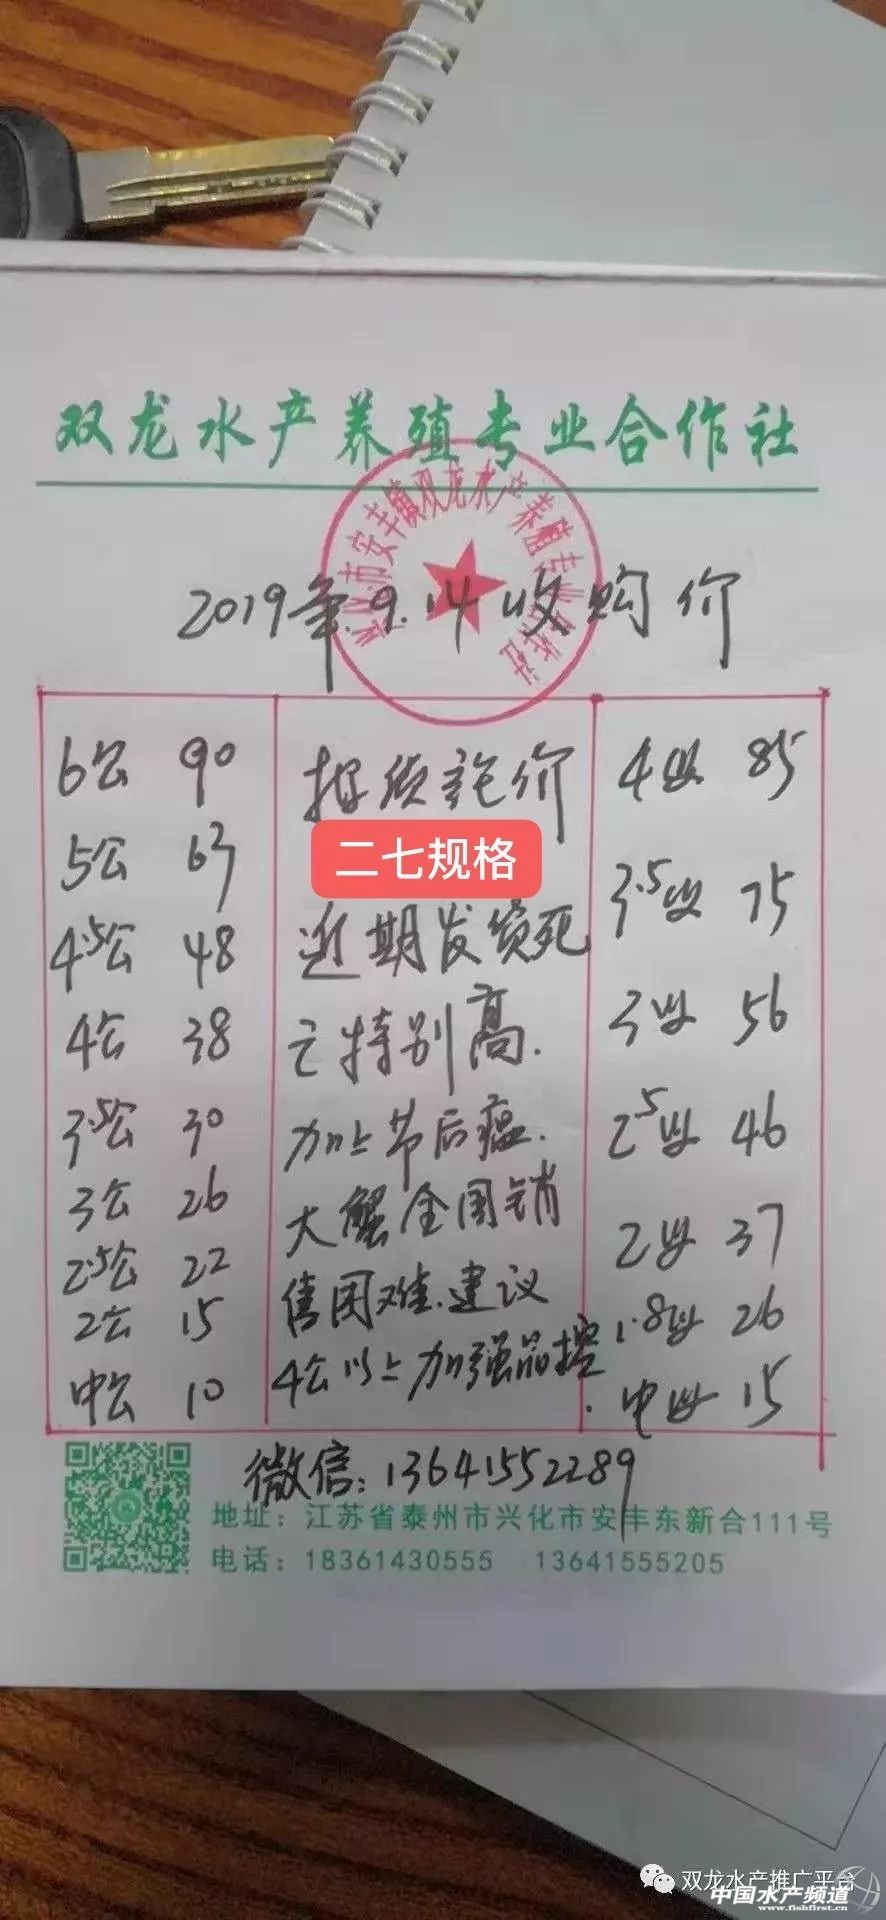 双龙水产养殖专业合作社
兴化市安丰镇双龙水产养殖专业合作社
2019年.9.14收购价
6公 90
5公 63
4.5公 48
4公 38
3.5公 30
3公 26
2.5公 22
2公 15
中公 10
按质论价
二七规格
近期发货死
亡特别高.
加上节后瘟.
大蟹全国销
售困难.建议
4公以上加强品控.
4母 85
3.5母 75
3母 56
2.5母 46
2母 37
1.8母 26
中母 15
微信:13641552289
地址:江苏省泰州市兴化市安丰东新合111号
电话:18361430555 13641555205
双龙水产推广平台
中国水产频道
www.fishfirst.cn